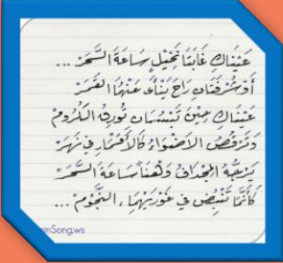 عَيْنَاكِ غَابَتَا نَخِيلٍ سَاعَةَ السَّحَرْ ...
أَوْ شُرْفَتَانِ رَاحَ يَنْأَى عَنْهُمَا القَمَرْ
عَيْنَاكِ حِيْنَ تَبْسُمَانِ تُورِقُ الكُرُومْ
وَتَرْقُصُ الأَضْوَاءُ كَالأَقْمَارِ فِي نَهَرْ
يَرُجُّهُ المِجْدَافُ وَهْنًا سَاعَةَ السَّحَرْ
كَأَنَّمَا تَنْبُضُ فِي غَوْرَيْهِمَا، النُّجُومْ ...
inSong.ws